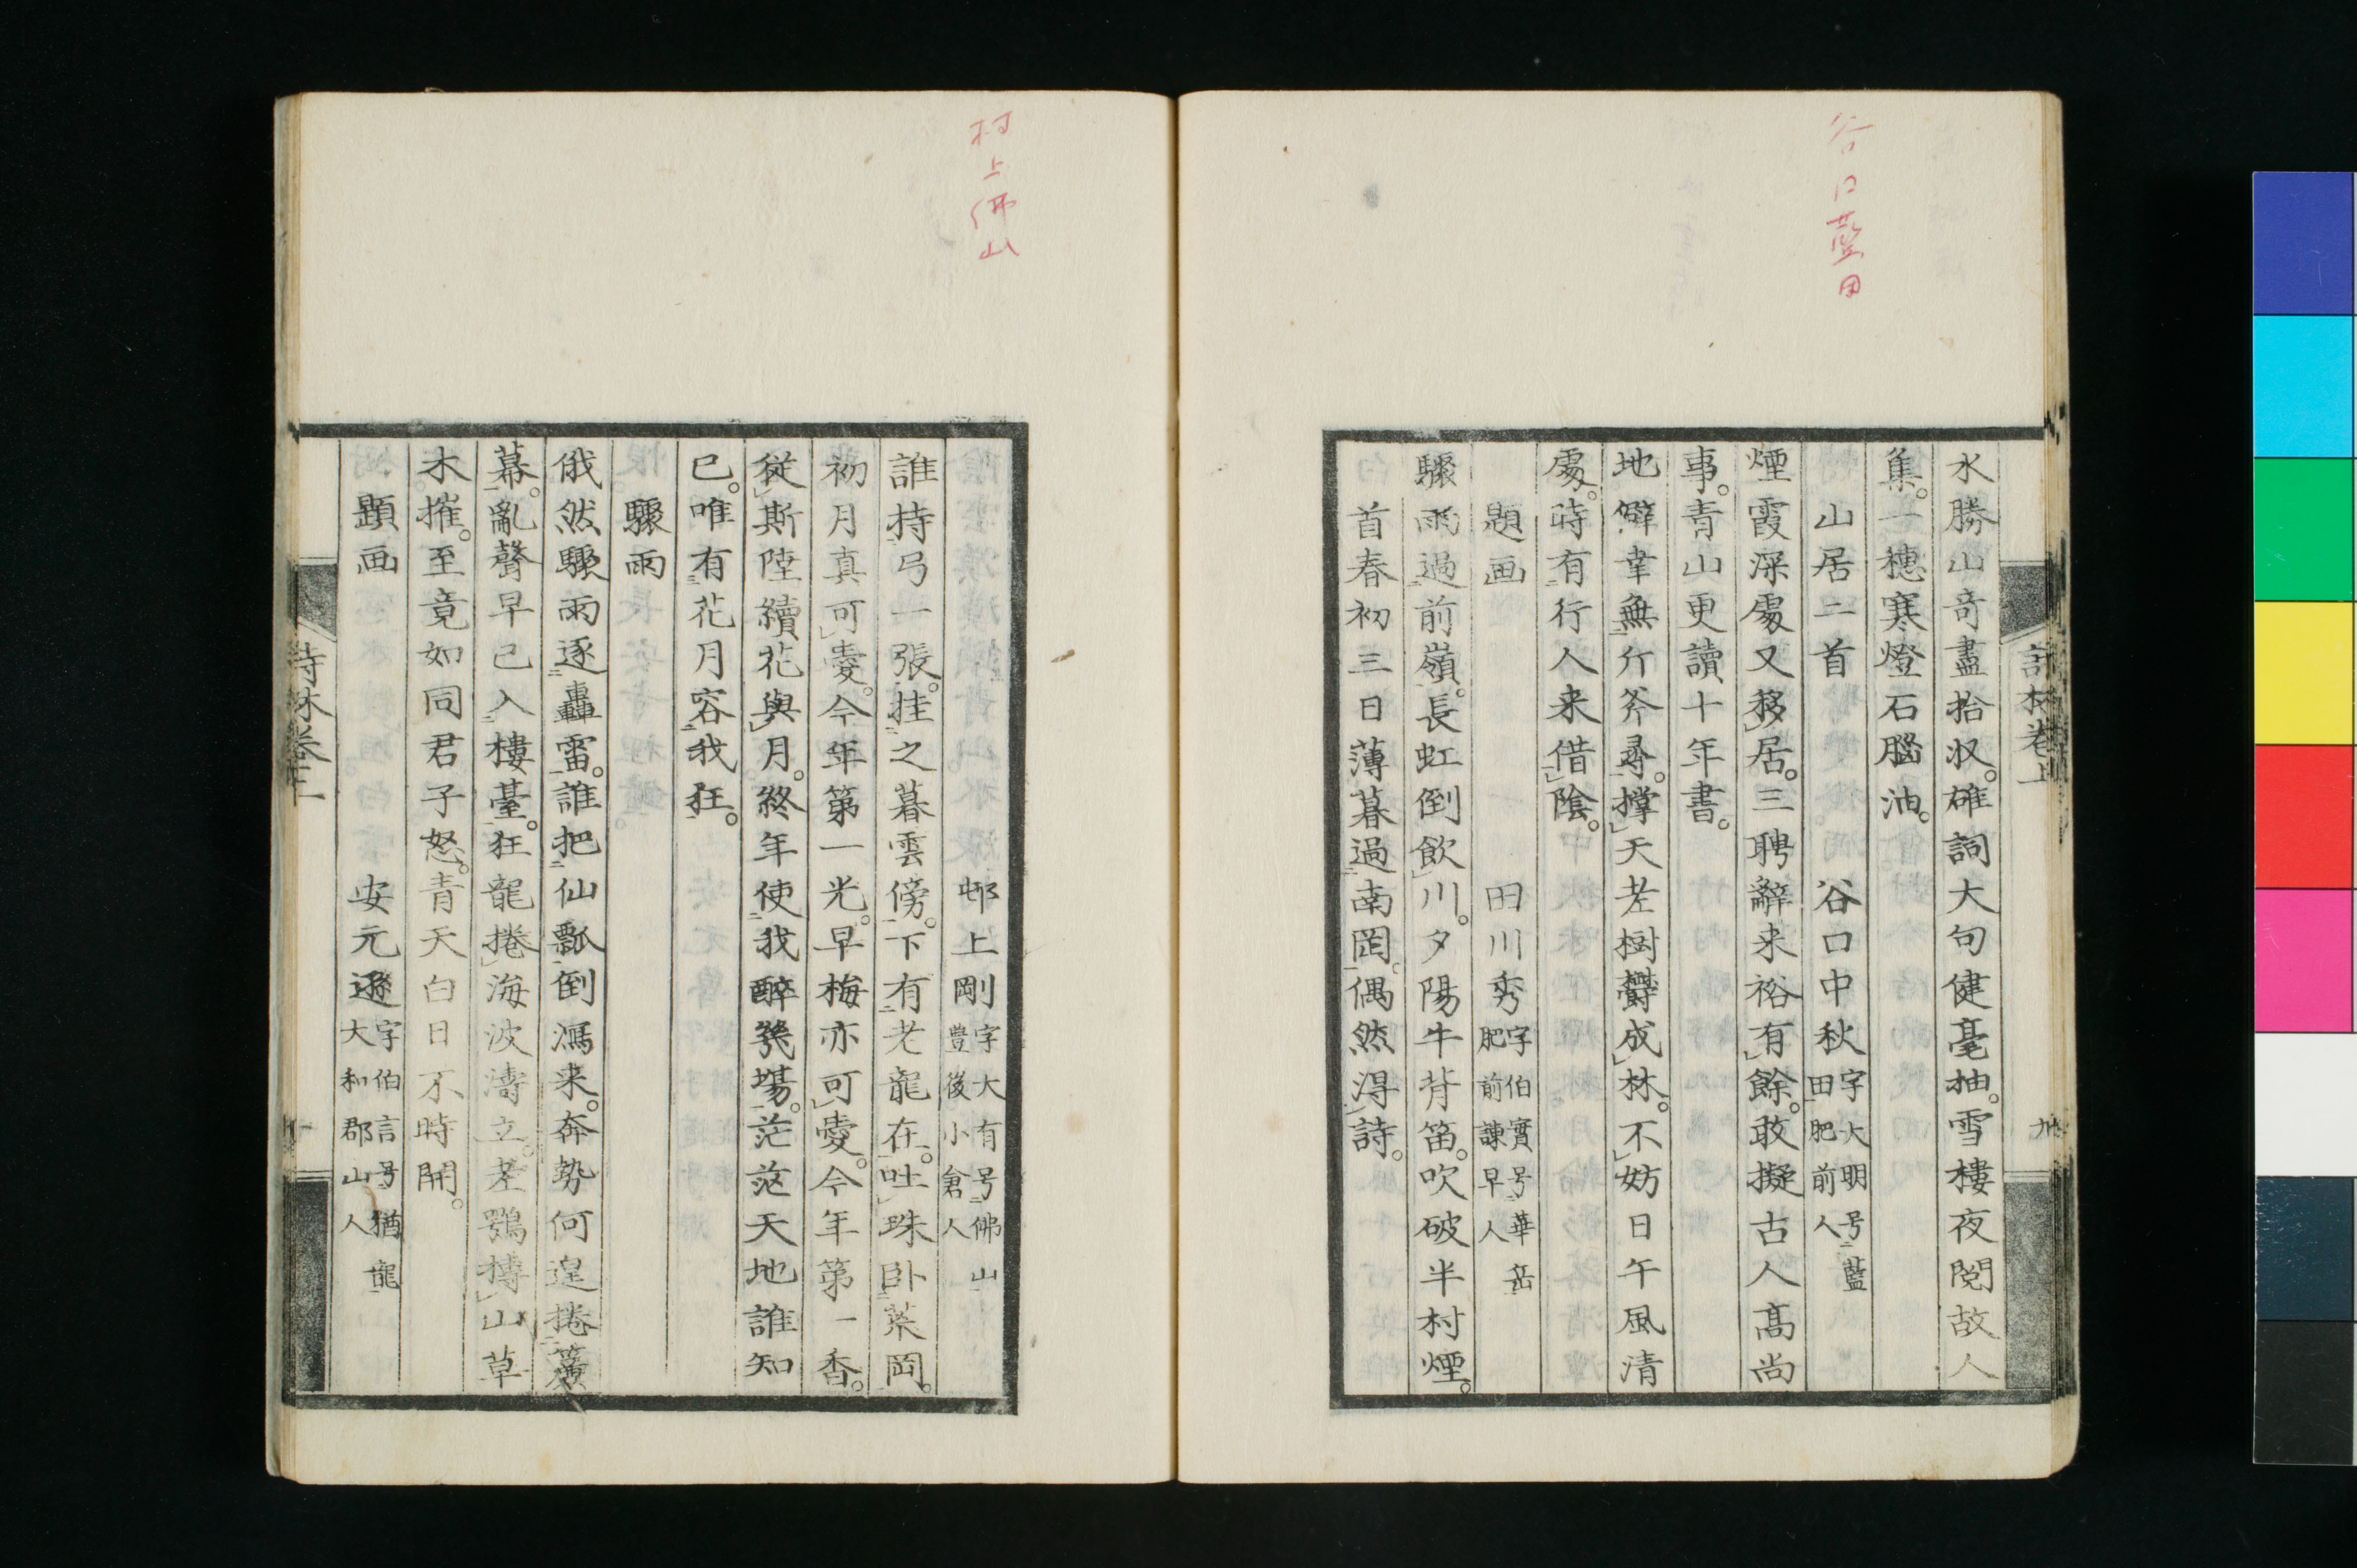 谷口藍田
水勝山奇盡拾收。雄詞大句健毫抽。雪樓夜閲故人
集。一穗寒燈石腦油。
山居二首　谷口中秋字大明号藍
田肥前人
煙霞深處又移居。三聘辭来裕有餘。敢擬古人髙尚
事。青山更讀十年書。
地僻幸無斤斧尋。撑天老樹欝成林。不妨日午風清
處。時有行人来借陰。
題画　田川秀字伯實号華岳
肥前諫早人
驟雨過前嶺。長虹倒飲川。夕陽牛背笛。吹破半村煙。
首春初三日薄暮過南岡。偶然得詩。
村上佛山
邨上剛字大有号佛山
豊後小倉人
誰持弓一張。挂之暮雲傍。下有老龍在。吐珠卧菜岡。
初月真可愛。今年第一光。早梅亦可愛。今年第一香。
従斯陸續花與月。終年使我醉幾塲。茫茫天地誰知
已。唯有花月容我狂。
驟雨
俄然驟雨逐轟雷。誰把仙瓢倒瀉来。奔勢何遑捲簾
幕。亂聲早已入樓臺。狂龍捲海波濤立。老鶚摶山草
木摧。至竟如同君子怒。青天白日不時開。
題画　安元遜字伯言号猶龍
大和郡山人
詩林卷上